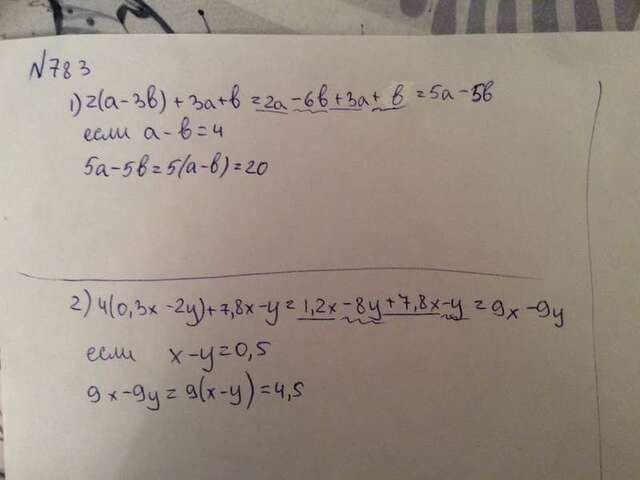 №783
1) 2(a-3в)+3a+в=2a-6в+3a+в=5a-5в
если a-в=4
5a-5в=5(a-в)=20
2) 4(0,3x-2y)+7,8x-y=1,2x-8y+7,8x-y=9x-9y
если x-y=0,5
9x-9y=9(x-y)=4,5